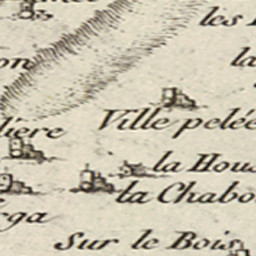 les
la
on
Ville pelée
liere
la Hous
la Chabo
ga
Sur le Bois